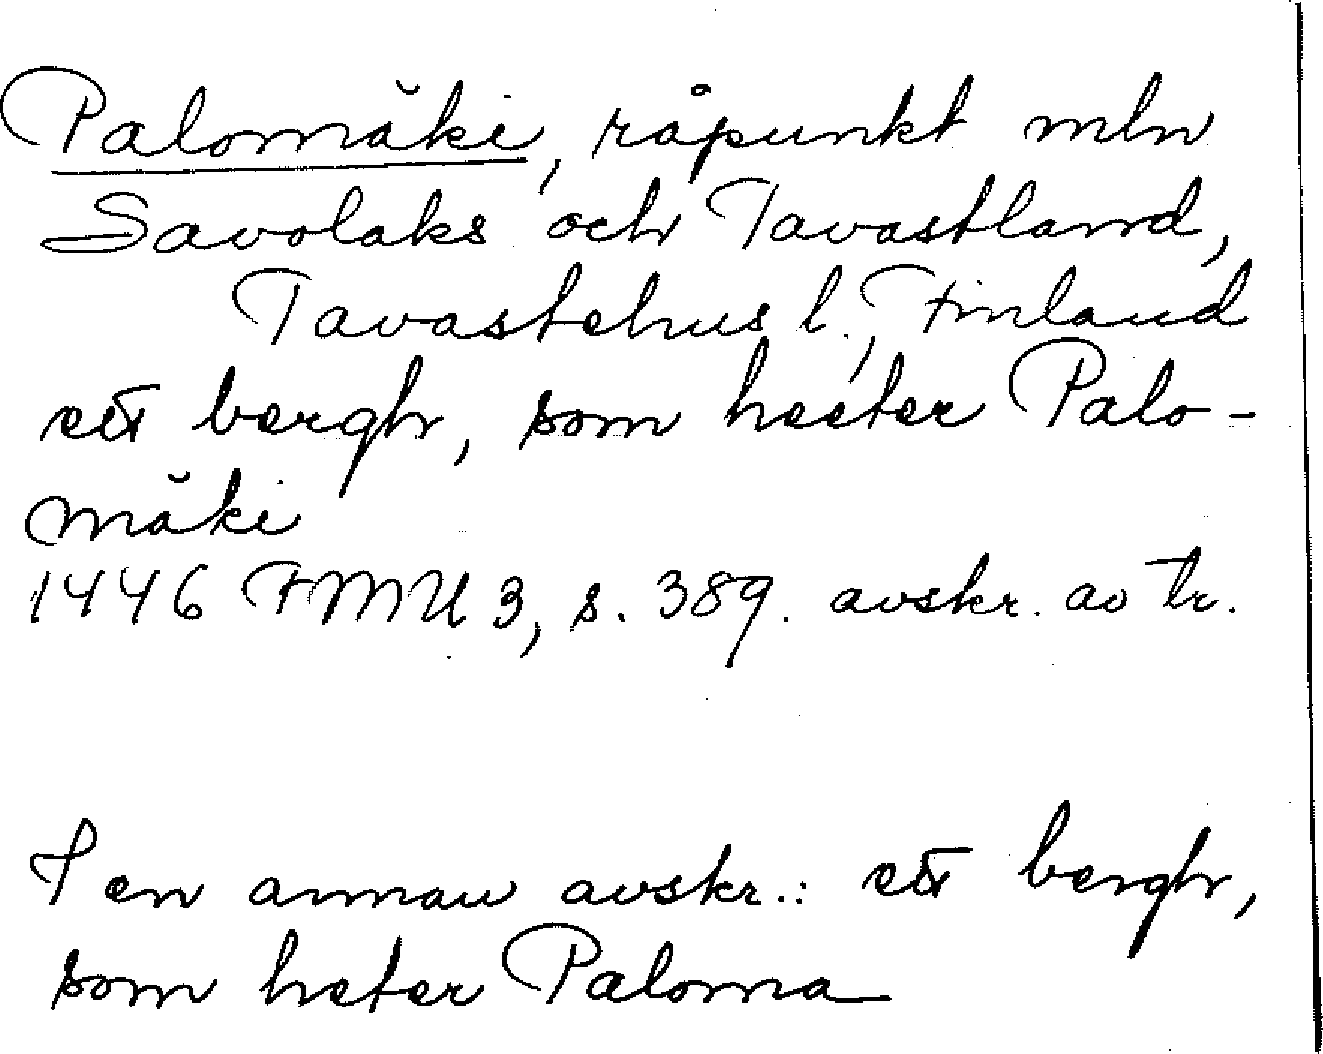 Palomäki, råpunkt mln
Savolaks och Tavastland,
Tavastehus l., Finland
ett bergh, som heeter Palo-
mäki
1446 FMU 3, s. 389. avskr. av tr.
I en annan avskr.: ett bergh,
som heter Paloma